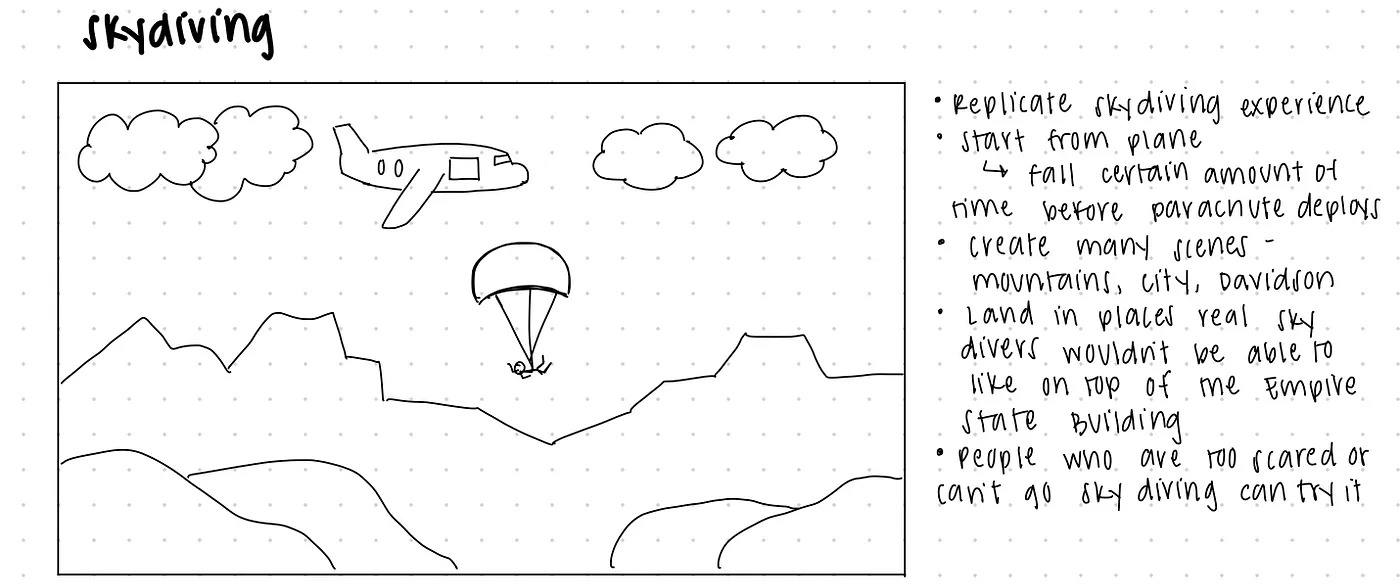 skydiving
• Replicate skydiving experience
• start from plane
↳ fall certain amount of
time before parachute deploys
• create many scenes -
mountains, city, Davidson
• Land in places real sky
divers wouldn't be able to
like on top of the Empire
State Building
• people who are too scared or
can't go sky diving can try it